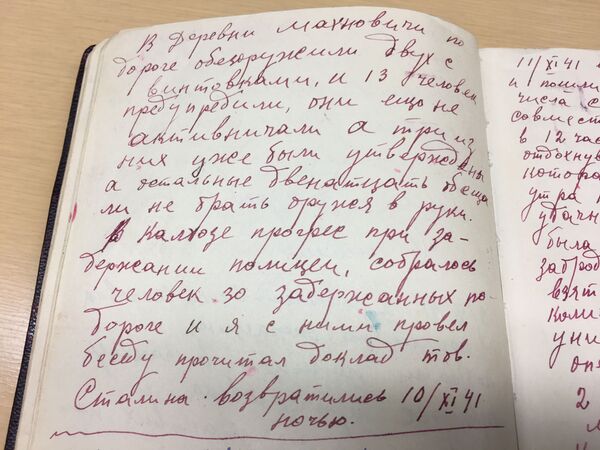 В деревни Махновичи по
дороге обезоружили двух с
винтовками, и 13 человек
предупредили, они ещо не
активничали а три из
них уже были утверждены
а остальные двенатцать обеща
ли не брать оружея в руки.
В Калюзе прогрес при за-
держании полицеи, собралось
человек 30 задержанных по-
дороге и я с ними провел
беседу прочитал доклад тов.
Сталина. возвратились 10/XI 41
ночью.
11/XI 41
и пошли
числа с
совмест
в 12 час
отдохну
котора
утра
удачн
была
заброд
взят
коли
уни
опе
2